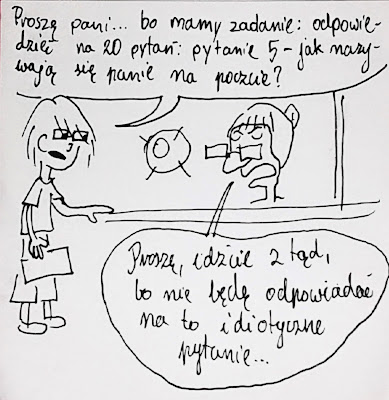 Proszę pani... bo mamy zadanie: odpowie-
dzieć na 20 pytań: pytanie 5 - jak nazy-
wają się panie na poczcie?
Proszę, idźcie z tąd,
bo nie będę odpowiadać
na to idiotyczne
pytanie...